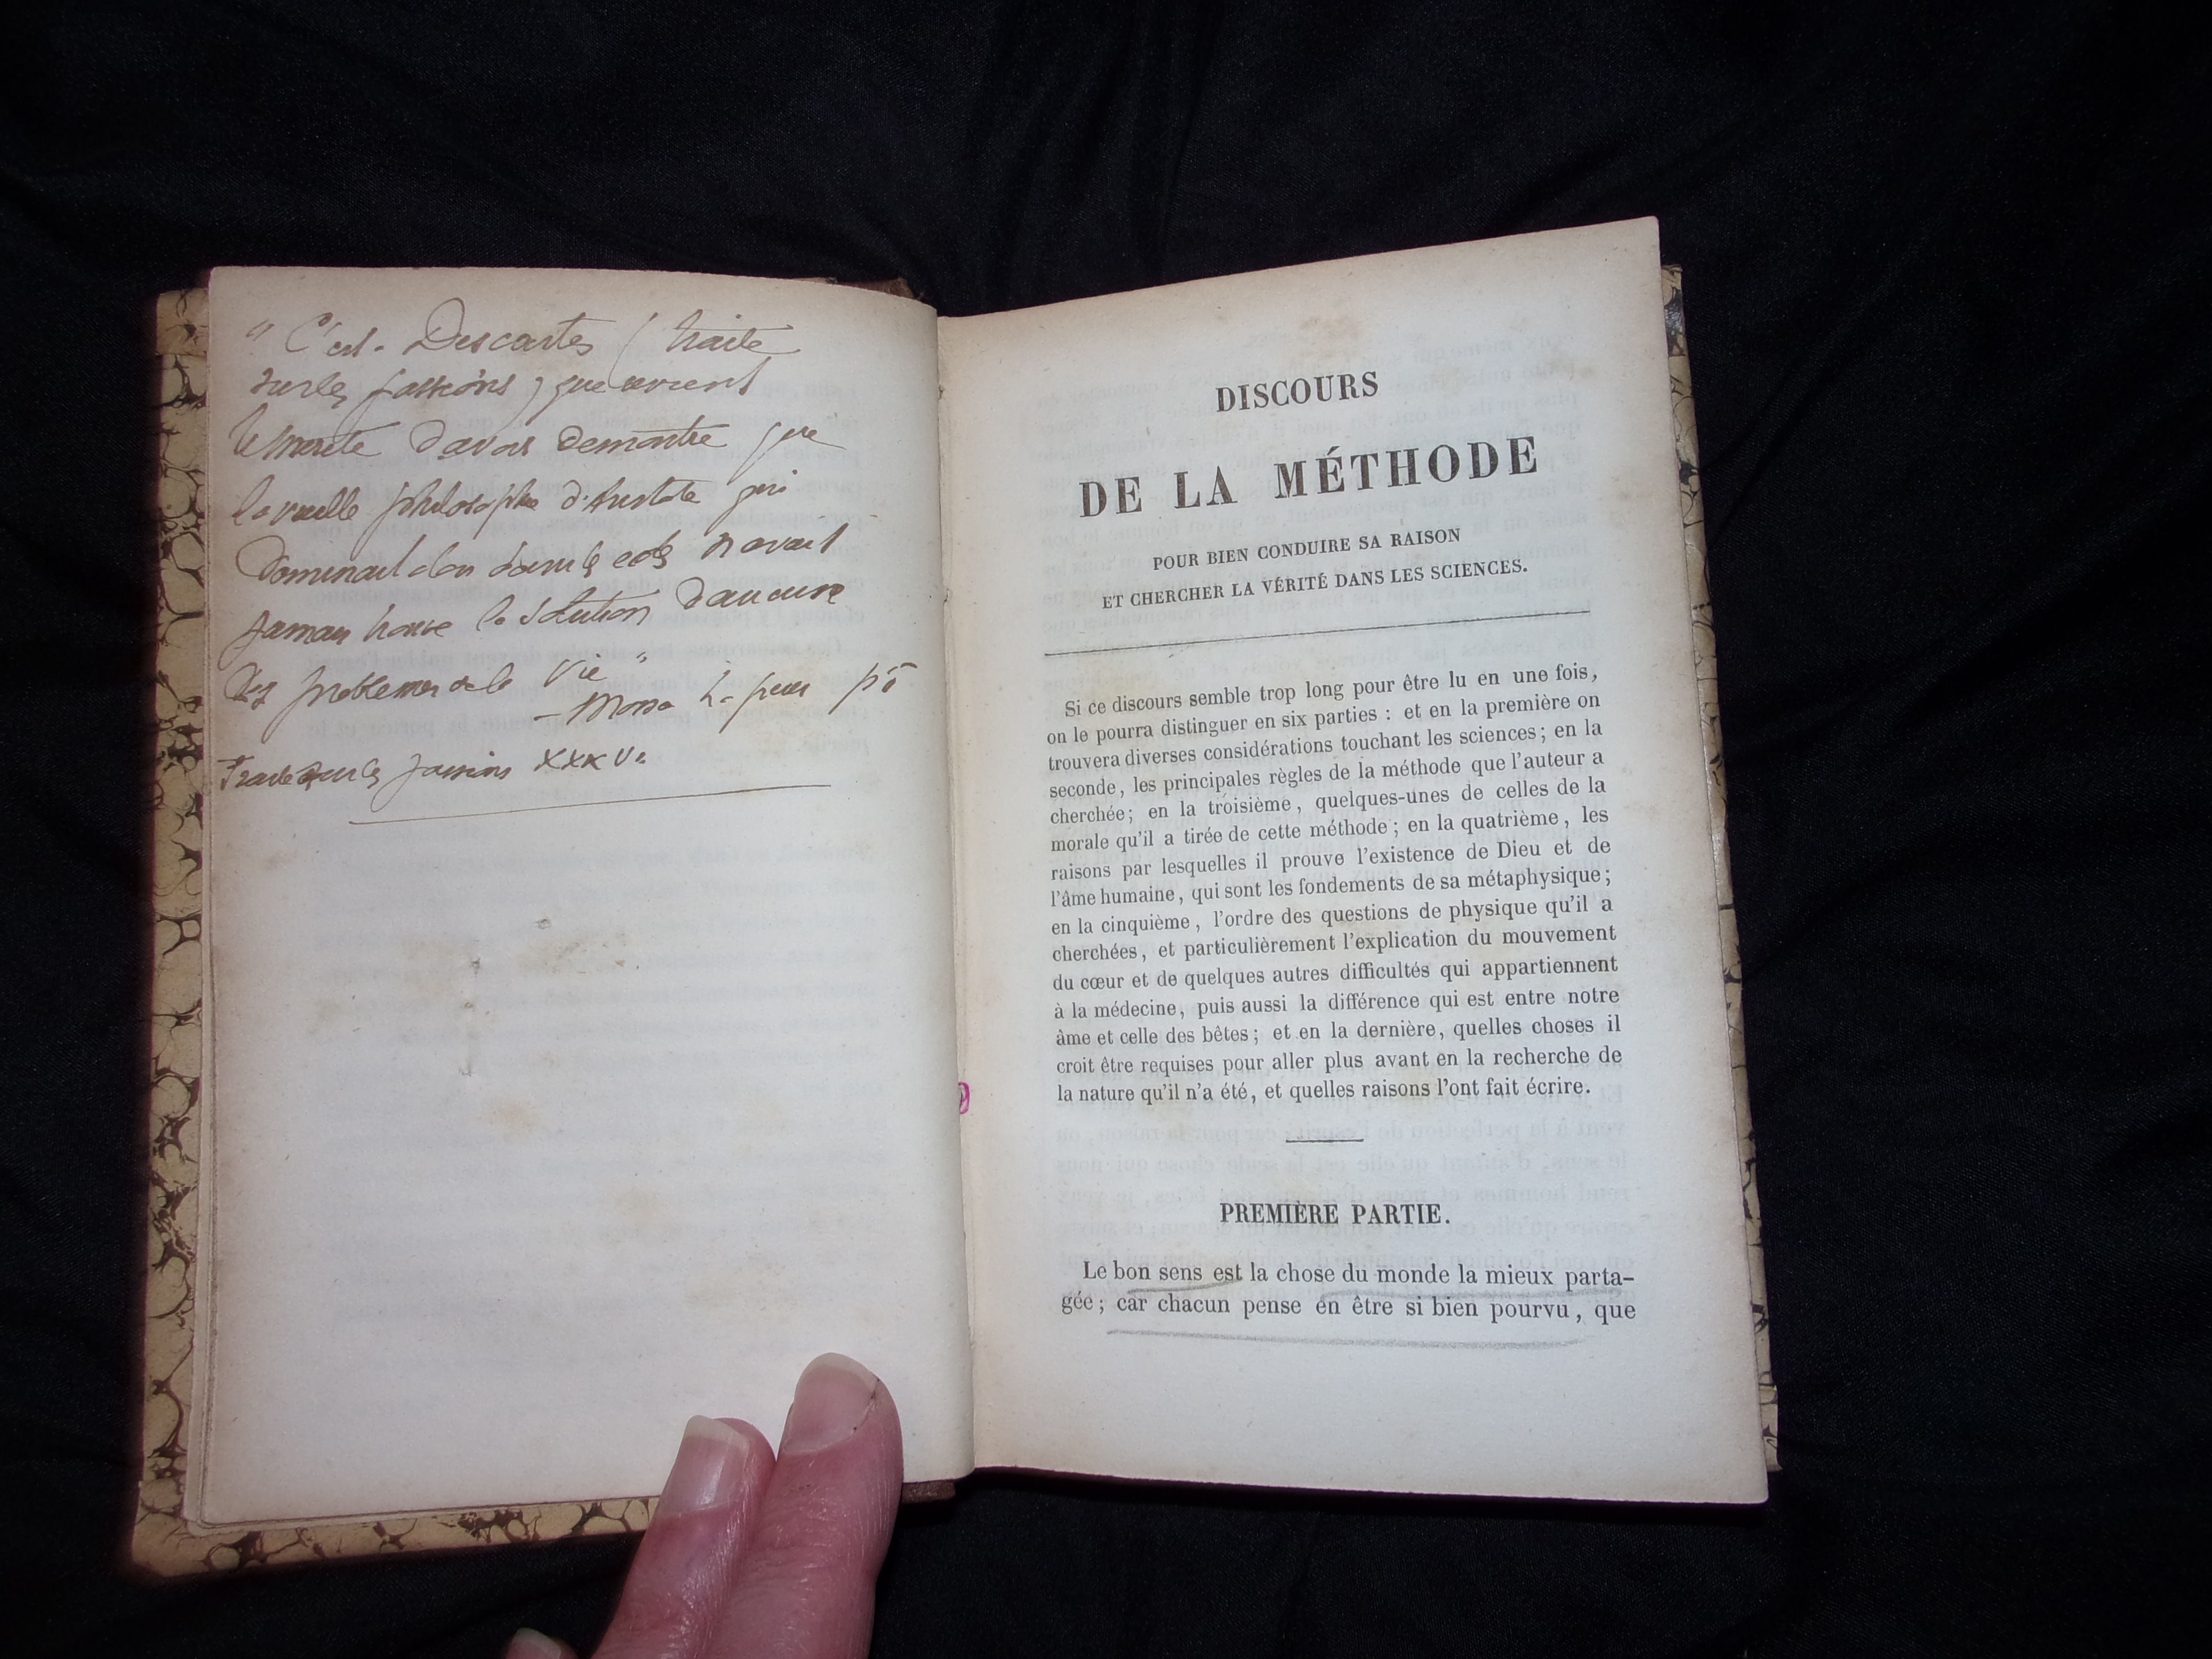 " C'est Descartes ( traité
sur les passions ) que revient
le merite d'avoir demontré que
la vieille philosophie d'Aristote qui
dominait alors dans les ecoles n'avait
jamais trouvé la solution d'aucune
des problemes de la vie "
— Mosso La peur p.
Traité sur les passions XXXV.
DISCOURS
DE LA MÉTHODE
POUR BIEN CONDUIRE SA RAISON
ET CHERCHER LA VÉRITÉ DANS LES SCIENCES.
Si ce discours semble trop long pour être lu en une fois,
on le pourra distinguer en six parties : et en la première on
trouvera diverses considérations touchant les sciences ; en la
seconde, les principales règles de la méthode que l'auteur a
cherchée ; en la troisième, quelques-unes de celles de la
morale qu'il a tirée de cette méthode ; en la quatrième, les
raisons par lesquelles il prouve l'existence de Dieu et de
l'âme humaine, qui sont les fondements de sa métaphysique ;
en la cinquième, l'ordre des questions de physique qu'il a
cherchées, et particulièrement l'explication du mouvement
du cœur et de quelques autres difficultés qui appartiennent
à la médecine, puis aussi la différence qui est entre notre
âme et celle des bêtes ; et en la dernière, quelles choses il
croit être requises pour aller plus avant en la recherche de
la nature qu'il n'a été, et quelles raisons l'ont fait écrire.
PREMIÈRE PARTIE.
Le bon sens est la chose du monde la mieux parta-
gée ; car chacun pense en être si bien pourvu, que